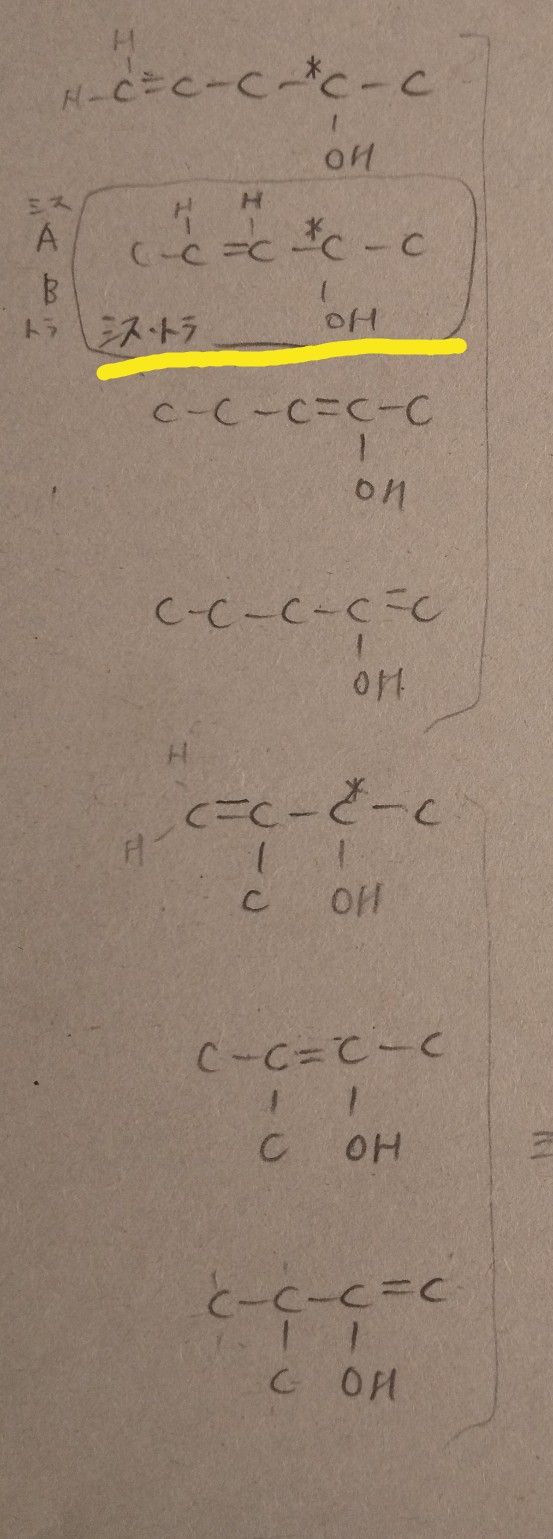 H
H-C=C-C-*C-C
OH
シス
H H
A
C-C=C-*C-C
B
OH
トラ シス・トラ
C-C-C=C-C
OH
C-C-C-C=C
OH
H
C=C-C*-C
H
C OH
C-C=C-C
C OH
C-C-C=C
C OH